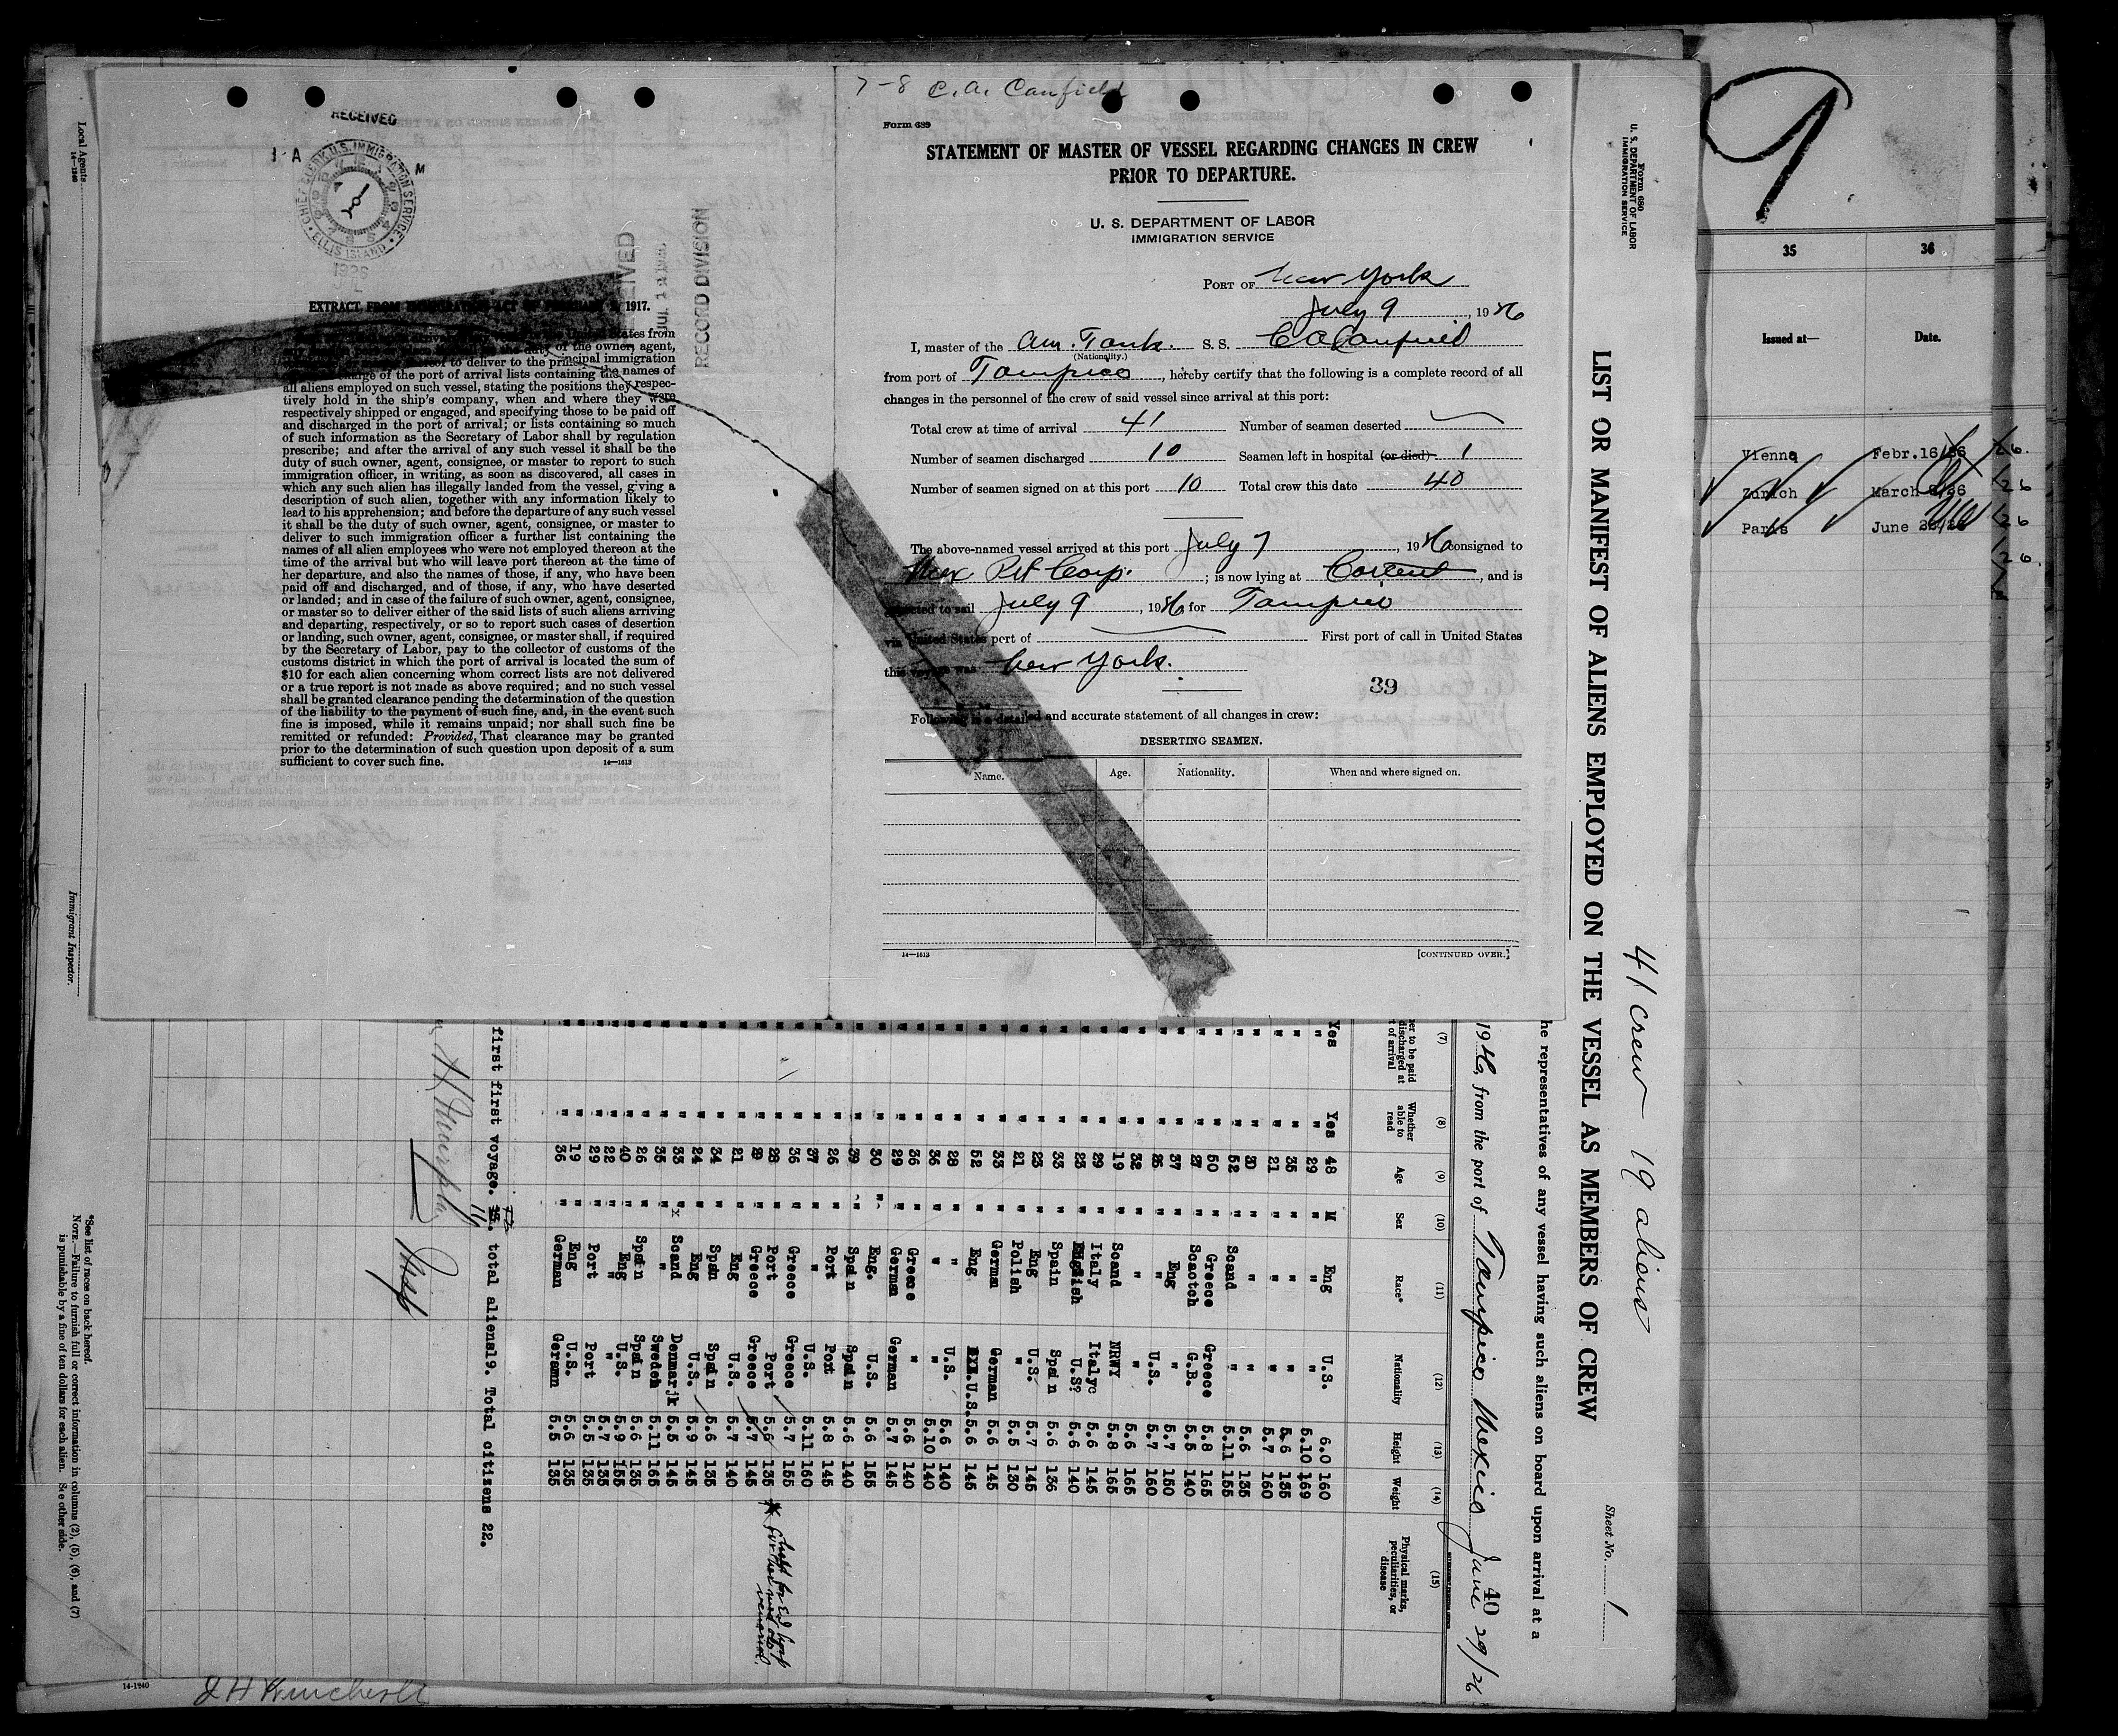 RECEIVED
CHIEF CLERK U.S. IMMIGRATION SERVICE
ELLIS ISLAND
1926
RECORD DIVISION
EXTRACT FROM IMMIGRATION ACT OF FEBRUARY 5, 1917.
of the owner, agent,
to deliver to the principal immigration
charge of the port of arrival lists containing the names of
all aliens employed on such vessel, stating the positions they respec-
tively hold in the ship's company, when and where they were
respectively shipped or engaged, and specifying those to be paid off
and discharged in the port of arrival; or lists containing so much
of such information as the Secretary of Labor shall by regulation
prescribe; and after the arrival of any such vessel it shall be the
duty of such owner, agent, consignee, or master to report to such
immigration officer, in writing, as soon as discovered, all cases in
which any such alien has illegally landed from the vessel, giving a
description of such alien, together with any information likely to
lead to his apprehension; and before the departure of any such vessel
it shall be the duty of such owner, agent, consignee, or master to
deliver to such immigration officer a further list containing the
names of all alien employees who were not employed thereon at the
time of the arrival but who will leave port thereon at the time of
her departure, and also the names of those, if any, who have been
paid off and discharged, and of those, if any, who have deserted
or landed; and in case of the failure of such owner, agent, consignee,
or master so to deliver either of the said lists of such aliens arriving
and departing, respectively, or so to report such cases of desertion
or landing, such owner, agent, consignee, or master shall, if required
by the Secretary of Labor, pay to the collector of customs of the
customs district in which the port of arrival is located the sum of
$10 for each alien concerning whom correct lists are not delivered
or a true report is not made as above required; and no such vessel
shall be granted clearance pending the determination of the question
of the liability to the payment of such fine, and, in the event such
fine is imposed, while it remains unpaid; nor shall such fine be
remitted or refunded: Provided, That clearance may be granted
prior to the determination of such question upon deposit of a sum
sufficient to cover such fine.
14—1613
7-8 C.A. Canfield
Form 689
STATEMENT OF MASTER OF VESSEL REGARDING CHANGES IN CREW
PRIOR TO DEPARTURE.
U. S. DEPARTMENT OF LABOR
IMMIGRATION SERVICE
PORT OF New York
July 9, 1926
I, master of the Am. Tank. S. S. C A Canfield
(Nationality.)
from port of Tampico, hereby certify that the following is a complete record of all
changes in the personnel of the crew of said vessel since arrival at this port:
Total crew at time of arrival 41 Number of seamen deserted
Number of seamen discharged 10 Seamen left in hospital (or died) 1
Number of seamen signed on at this port 10 Total crew this date 40
The above-named vessel arrived at this port July 7, 1926 consigned to
Mex Pet Corp.; is now lying at Carteret, and is
expected to sail July 9, 1926 for Tampico
via United States port of First port of call in United States
this voyage was New York.
39
Following is a detailed and accurate statement of all changes in crew:
DESERTING SEAMEN.
Name. Age. Nationality. When and where signed on.
14—1613 [CONTINUED OVER.]
Form 680
U. S. DEPARTMENT OF LABOR
IMMIGRATION SERVICE
LIST OR MANIFEST OF ALIENS EMPLOYED ON THE VESSEL AS MEMBERS OF CREW
41 crew 19 aliens
Sheet No. 1
he representatives of any vessel having such aliens on board upon arrival at a
1926, from the port of Tampico Mexico June 29/26
40
(7) (8) (9) (10) (11) (12) (13) (14) (15)
Whether able to read Age Sex Race* Nationality Height Weight Physical marks, peculiarities, or disease
Yes Yes 48 M Eng U.S. 6.0 160
" " 29 " " " 5.10 169
" " 35 " " " 5.6 135
" " 21 " " " 5.7 160
" " 30 " " " 5.6 135
" " 52 " Scand " 5.11 155
" " 50 " Greece Greece 5.8 165
" " 27 " Scaotch G.B. 5.5 140
" " 37 " Eng " 5.7 150
" " 25 " " U.S. 5.7 160
" " 32 " " " 5.6 165
" " 19 " Scand NRWY 5.8 165
" " 29 " Italy Italyc 5.6 145
" " 23 " English U.S? 5.6 140
" " 33 " Spain Spain 5.6 136
" " 23 " Eng U.S. 5.7 145
" " 21 " Polish " 5.5 130
" " 33 " German German 5.6 145
" " 52 " Eng U.S. 5.6 145
" " 28 " " U.S. 5.6 140
" " 36 " " " 5.10 140
" " 36 " Greece " 5.6 140
" " 29 " German German 5.7 145
" " 30 " Eng. U.S. 5.6 155
" " 39 " Spain Spain 5.6 140
" " 26 " Port Port 5.8 145
" " 37 " " U.S. 5.11 160
" " 36 " Greece Greece 5.7 155
" " 28 " Port Port 5.6 135
" " 29 " Greece Greece 5.7 145
" " 21 " Eng U.S. 5.7 140
" " 34 " Spain Spain 5.6 135
" " 24 " Eng U.S. 5.9 145
" " 33 " Scand Denmarjk 5.5 145
" " 35 " " Sweden 5.11 165
" " 26 " Spain Spain 5.6 135
" " 40 " Eng U.S. 5.9 155
" " 22 " " " 5.7 135
" " 29 " Port Port 5.5 135
" " 19 " Eng U.S. 5.6 135
" " 36 " German Geramn 5.5 135
first first voyage. total aliens19. Total citizens 22.
*See list of races on back hereof.
NOTE.—Failure to furnish full or correct information in columns (2), (5), (6), and (7)
is punishable by a fine of ten dollars for each alien. See other side.
14-1240
Local Agents
14—1240
Immigrant Inspector.
9
35 36
Issued at— Date.
Vienna Febr.16/26
Zurich March
Paris June